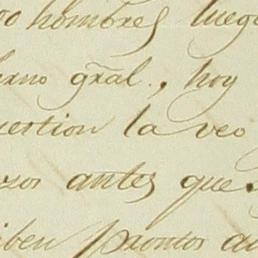 hombres luego
erno gral., hoy
uestion la veo
antes que
iben prontos